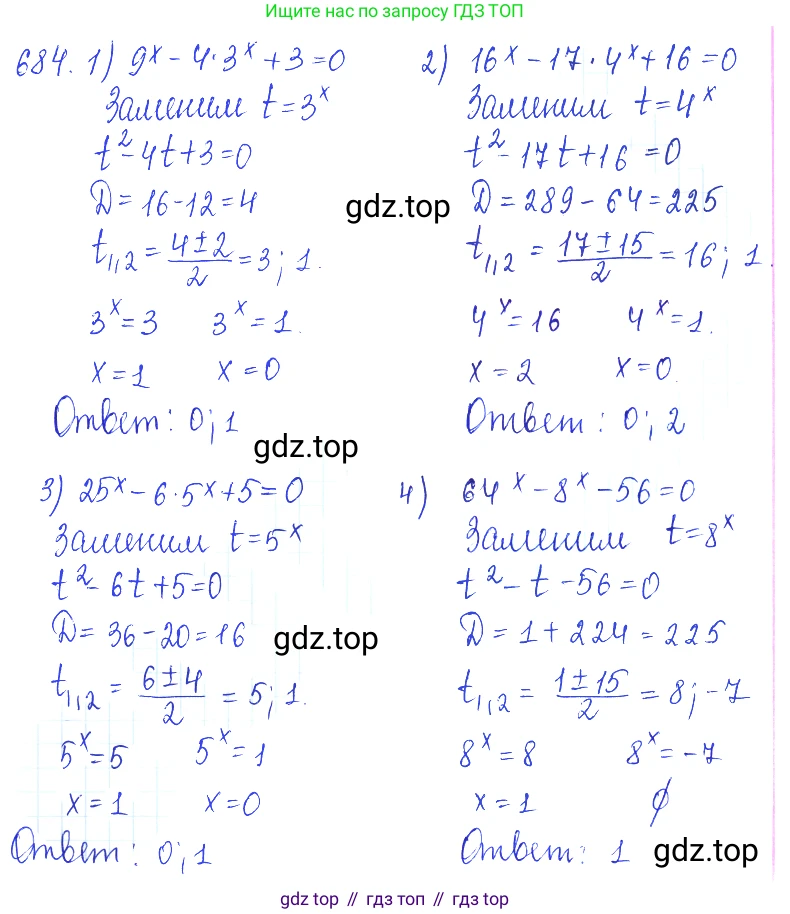 Ищите нас по запросу ГДЗ ТОП
684. 1) 9^x - 4·3^x + 3 = 0
Заменим t = 3^x
t^2 - 4t + 3 = 0
D = 16 - 12 = 4
t_{1,2} = \frac{4 ± 2}{2} = 3; 1.
3^x = 3 3^x = 1.
x = 1 x = 0
Ответ: 0; 1
2) 16^x - 17·4^x + 16 = 0
Заменим t = 4^x
t^2 - 17t + 16 = 0
D = 289 - 64 = 225
t_{1,2} = \frac{17 ± 15}{2} = 16; 1.
4^x = 16 4^x = 1.
x = 2 x = 0.
Ответ: 0; 2
gdz.top
gdz.top
3) 25^x - 6·5^x + 5 = 0
Заменим t = 5^x
t^2 - 6t + 5 = 0
D = 36 - 20 = 16
t_{1,2} = \frac{6 ± 4}{2} = 5; 1.
5^x = 5 5^x = 1
x = 1 x = 0
Ответ: 0; 1
4) 64^x - 8^x - 56 = 0
Заменим t = 8^x
t^2 - t - 56 = 0
D = 1 + 224 = 225
t_{1,2} = \frac{1 ± 15}{2} = 8; -7
8^x = 8 8^x = -7
x = 1 ∅
Ответ: 1
gdz.top
gdz.top
gdz топ // гдз топ // gdz top // гдз top